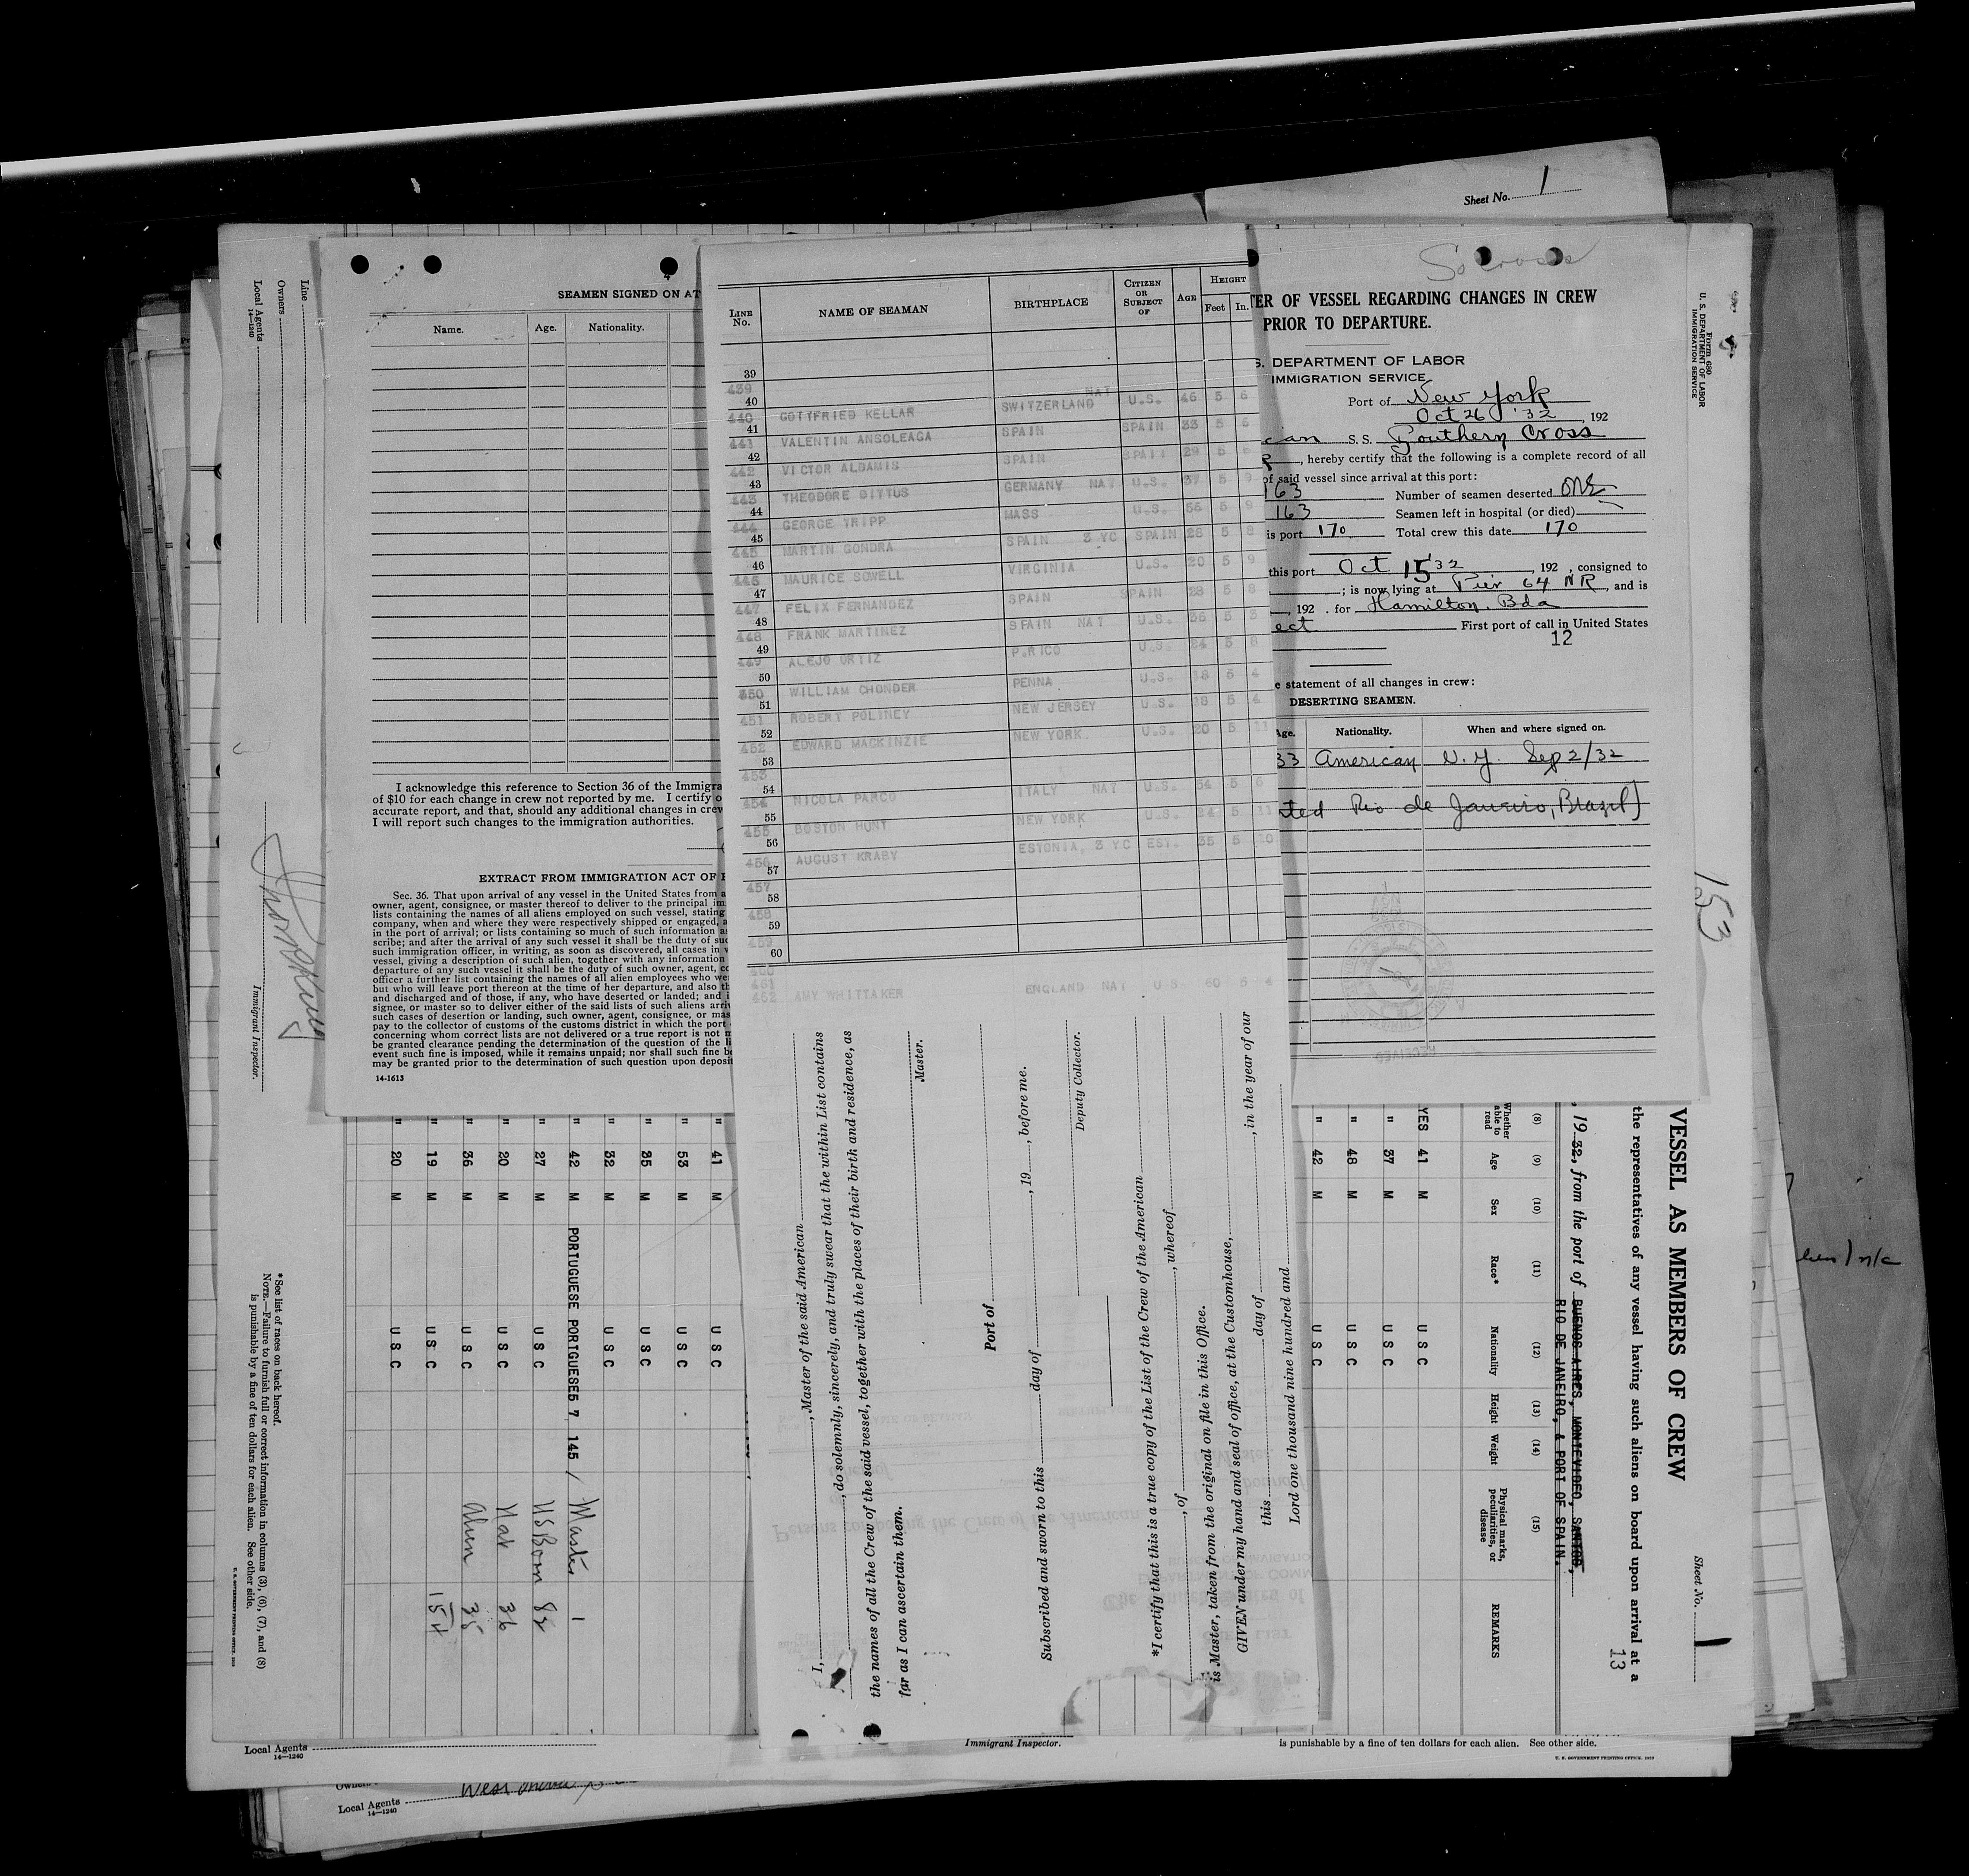 Sheet No. 1
SEAMEN SIGNED ON AT
Name. Age. Nationality.
I acknowledge this reference to Section 36 of the Immigra
of $10 for each change in crew not reported by me. I certify
accurate report, and that, should any additional changes in crew
I will report such changes to the immigration authorities.
EXTRACT FROM IMMIGRATION ACT OF
Sec. 36. That upon arrival of any vessel in the United States from
owner, agent, consignee, or master thereof to deliver to the principal im
lists containing the names of all aliens employed on such vessel, stating
company, when and where they were respectively shipped or engaged,
in the port of arrival; or lists containing so much of such information as
scribe; and after the arrival of any such vessel it shall be the duty of suc
such immigration officer, in writing, as soon as discovered, all cases in
vessel, giving a description of such alien, together with any information
departure of any such vessel it shall be the duty of such owner, agent,
officer a further list containing the names of all alien employees who we
but who will leave port thereon at the time of her departure, and also th
and discharged and of those, if any, who have deserted or landed; and
signee, or master so to deliver either of the said lists of such aliens arri
such cases of desertion or landing, such owner, agent, consignee, or mas
pay to the collector of customs of the customs district in which the port
concerning whom correct lists are not delivered or a true report is not
be granted clearance pending the determination of the question of the
event such fine is imposed, while it remains unpaid; nor shall such fine be
may be granted prior to the determination of such question upon deposit
14-1613
LINE No. NAME OF SEAMAN BIRTHPLACE CITIZEN OR SUBJECT OF AGE HEIGHT Feet In.
39
439
40
440 GOTTFRIED KELLAR SWITZERLAND NAT U.S. 46 5 6
41
441 VALENTIN ANSOLEAGA SPAIN SPAIN 33 5 6
42
442 VICTOR ALDAMIS SPAIN SPAIN 29 5 6
43
443 THEODORE DITTUS GERMANY NAT U.S. 37 5 9
44
444 GEORGE TRIPP MASS U.S. 56 5 9
45
445 MARTIN GONDRA SPAIN 3 YC SPAIN 28 5 8
46
446 MAURICE SOWELL VIRGINIA U.S. 20 5 9
47
447 FELIX FERNANDEZ SPAIN SPAIN 23 5 8
48
448 FRANK MARTINEZ SPAIN NAT U.S. 36 5 3
49
449 ALEJO ORTIZ P.RICO U.S. 24 5 8
50
450 WILLIAM CHONDER PENNA U.S. 18 5 4
51
451 ROBERT POLINEY NEW JERSEY U.S. 18 5 4
52
452 EDWARD MACKINZIE NEW YORK U.S. 20 5 11
53
453
54
454 NICOLA PARCO ITALY NAT U.S. 54 5 6
55
455 BOSTON HUNT NEW YORK U.S. 24 5 11
56
456 AUGUST KRABY ESTONIA, 3 YC EST. 35 5 10
57
457
58
458
59
459
60
460
461
462 AMY WHITTAKER ENGLAND NAT U S 60 5 4
So Cross
TER OF VESSEL REGARDING CHANGES IN CREW
PRIOR TO DEPARTURE.
S. DEPARTMENT OF LABOR
IMMIGRATION SERVICE
Port of New York
Oct 26 '32, 192
can S. S. Southern Cross
, hereby certify that the following is a complete record of all
of said vessel since arrival at this port:
163 Number of seamen deserted one
163 Seamen left in hospital (or died)
is port 170 Total crew this date 170
this port Oct 15 '32, 192 , consigned to
; is now lying at Pier 64 NR, and is
, 192 . for Hamilton. Bda
ect First port of call in United States
12
e statement of all changes in crew:
DESERTING SEAMEN.
Age. Nationality. When and where signed on.
33 American N.Y. Sep 2/32
ted Rio de Janeiro, Brazil)
I, , Master of the said American
, do solemnly, sincerely, and truly swear that the within List contains
the names of all the Crew of the said vessel, together with the places of their birth and residence, as
far as I can ascertain them.
Master.
Port of
Subscribed and sworn to this day of , 19 , before me.
Deputy Collector.
*I certify that this is a true copy of the List of the Crew of the American
, of , whereof
is Master, taken from the original on file in this Office.
GIVEN under my hand and seal of office, at the Customhouse,
this day of , in the year of our
Lord one thousand nine hundred and
Form 680
U. S. DEPARTMENT OF LABOR
IMMIGRATION SERVICE
Sheet No. 1
VESSEL AS MEMBERS OF CREW
13
the representatives of any vessel having such aliens on board upon arrival at a
, 19 32, from the port of BUENOS AIRES, MONTEVIDEO, SANTOS,
RIO DE JANEIRO, & PORT OF SPAIN.
(8) (9) (10) (11) (12) (13) (14) (15)
Whether able to read Age Sex Race* Nationality Height Weight Physical marks, peculiarities, or disease REMARKS
YES 41 M U S C
" 37 M U S C
" 48 M U S C
" 42 M U S C
" 41 M U S C
" 53 M U S C
" 35 M U S C
" 32 M U S C
" 42 M PORTUGUESE PORTUGUESE5 7 145 / Master 1
" 27 M U S C US Born 82
" 20 M U S C Nat 36
" 36 M U S C Alien 35
" 19 M U S C 154
" 20 M U S C
153
Line
Owners
Local Agents
14—1240
Immigrant Inspector.
*See list of races on back hereof.
NOTE.—Failure to furnish full or correct information in columns (3), (6), (7), and (8)
is punishable by a fine of ten dollars for each alien. See other side.
U. S. GOVERNMENT PRINTING OFFICE
Local Agents
14—1240
Immigrant Inspector.
is punishable by a fine of ten dollars for each alien. See other side.
U. S. GOVERNMENT PRINTING OFFICE
Owners
Local Agents
14—1240